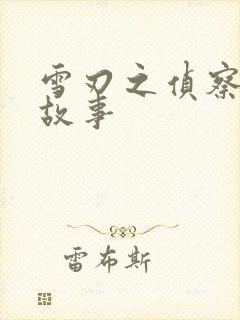 雪刃之偵察
故事
雷布斯